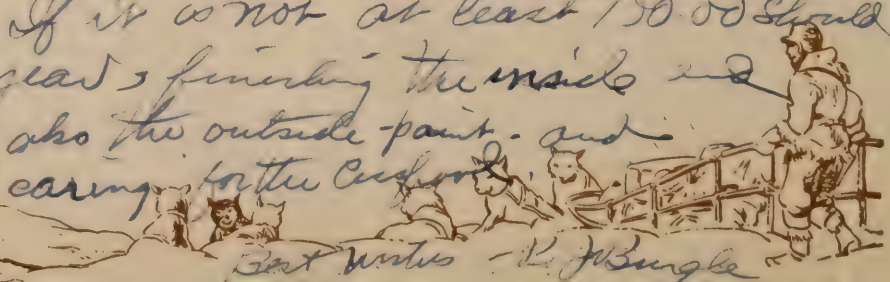 If it is not at least 150.00 should
finishing the inside and
also the outside - paint - and
caring for the
Best Wishes -